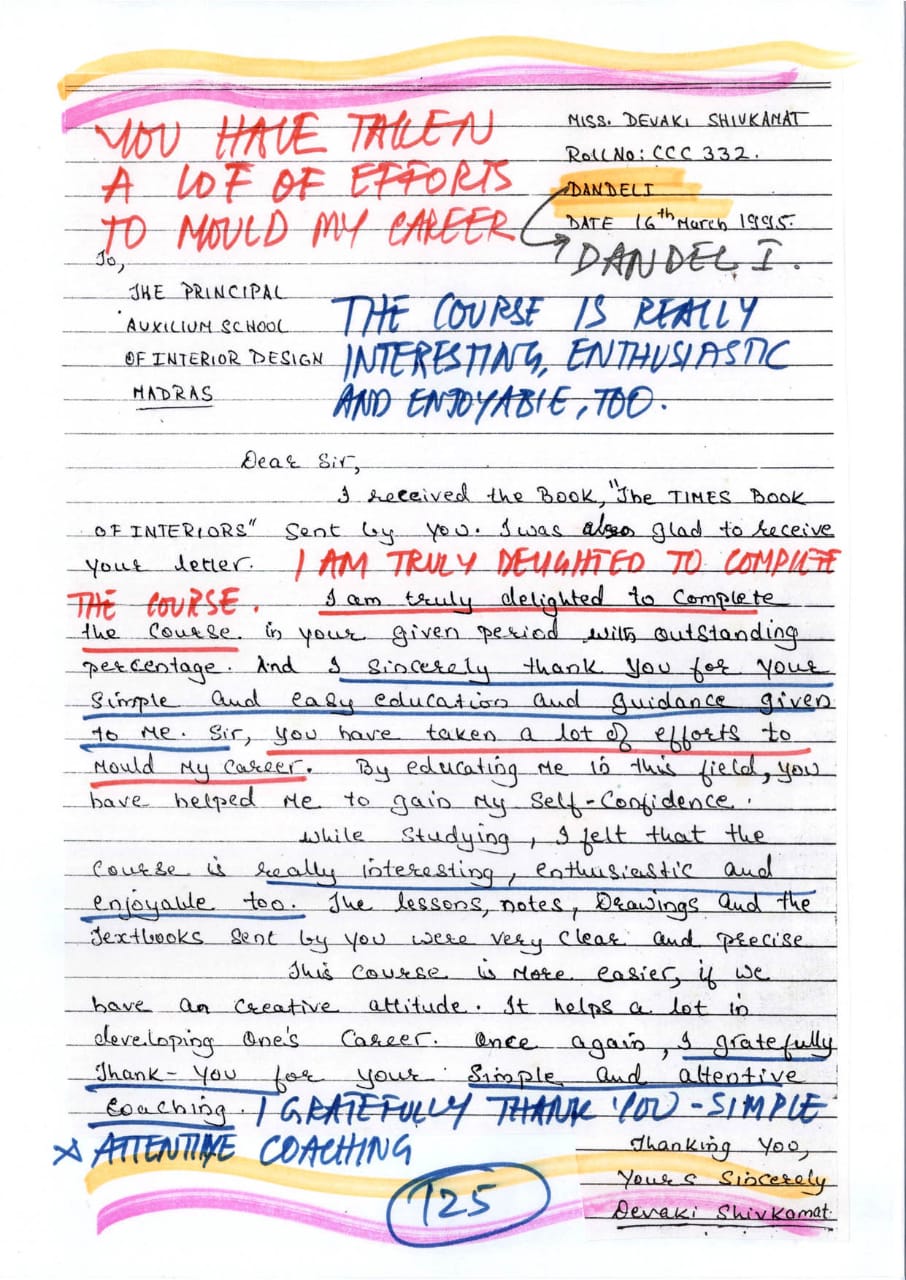 YOU HAVE TAKEN
A LOT OF EFFORTS
TO MOULD MY CAREER
MISS. DEVAKI SHIVKAMAT
Roll No: CCC 332.
DANDELI
DATE 16th March 1995.
DANDELI.
To,
THE PRINCIPAL
AUXILIUM SCHOOL
OF INTERIOR DESIGN
MADRAS
THE COURSE IS REALLY
INTERESTING, ENTHUSIASTIC
AND ENJOYABLE, TOO.
Dear Sir,
I received the BOOK, "The TIMES BOOK
OF INTERIORS" sent by you. I was also glad to receive
your letter. I AM TRULY DELIGHTED TO COMPLETE
THE COURSE. I am truly delighted to complete
the course in your given period with outstanding
percentage. And I sincerely thank you for your
simple and easy education and guidance given
to me. Sir, you have taken a lot of efforts to
mould my career. By educating me in this field, you
have helped me to gain my self-confidence.
While studying, I felt that the
course is really interesting, enthusiastic and
enjoyable too. The lessons, notes, Drawings and the
Textbooks sent by you were very clear and precise
This course is more easier, if we
have an creative attitude. It helps a lot in
developing one's career. Once again, I gratefully
Thank-you for your simple and attentive
coaching. I GRATEFULLY THANK YOU - SIMPLE
& ATTENTIVE COACHING
Thanking You,
Yours Sincerely
Devaki Shivkamat.
125